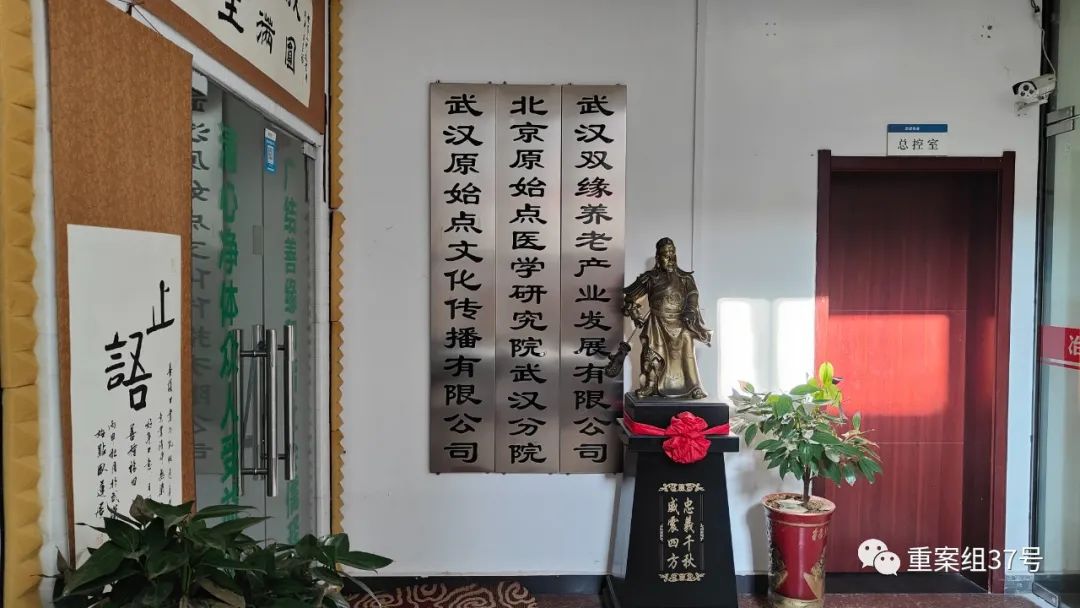 圓
满
止
語
心净体众人受
广结善缘
武汉原始点文化传播有限公司
北京原始点医学研究院武汉分院
武汉双缘养老产业发展有限公司
忠義千秋
威震四方
总控室
重案组37号